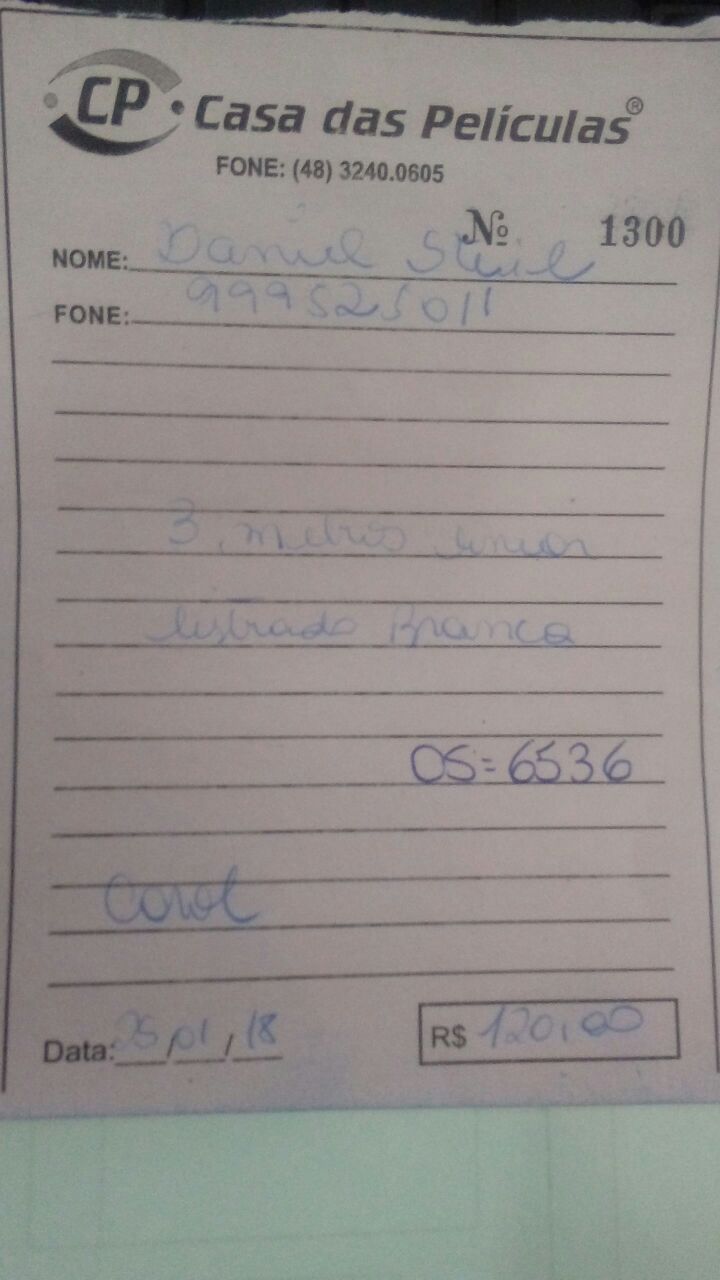 CP Casa das Películas®
FONE: (48) 3240.0605
Nº 1300
NOME: Daniel
FONE: 999525011
3 metros
listrado Branca
OS=6536
Carol
Data: 25/01/18
R$ 120,00